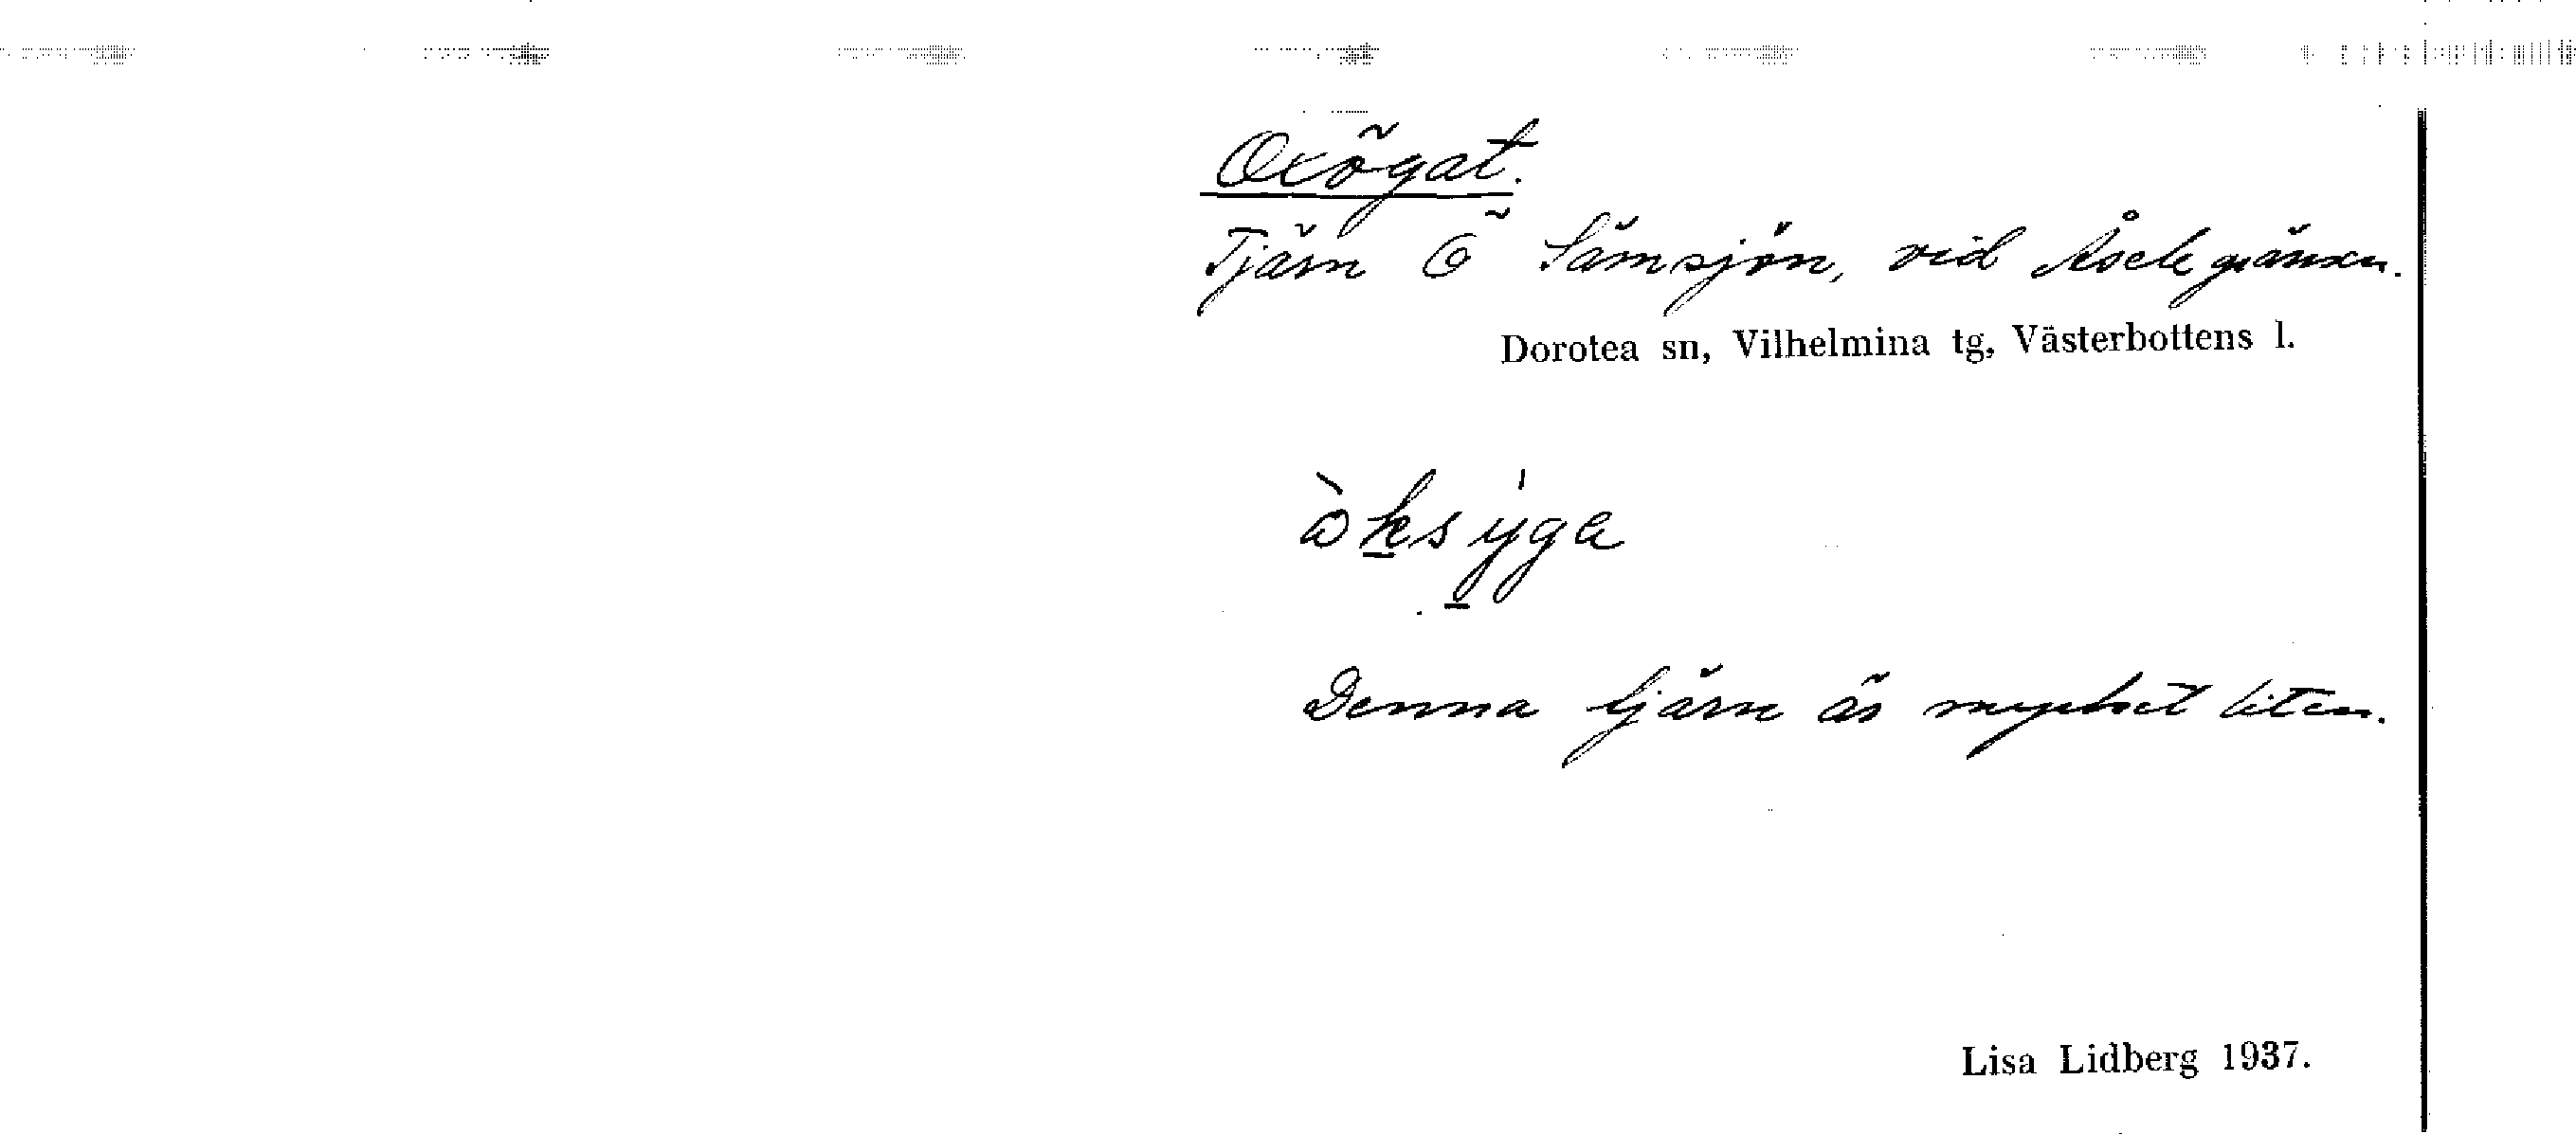 Oxögat.
Tjärn Ö Sämsjön, vid Åselegränsen.
Dorotea sn, Vilhelmina tg, Västerbottens l.
òksy̍ga
Denna tjärn är mycket liten.
Lisa Lidberg 1937.